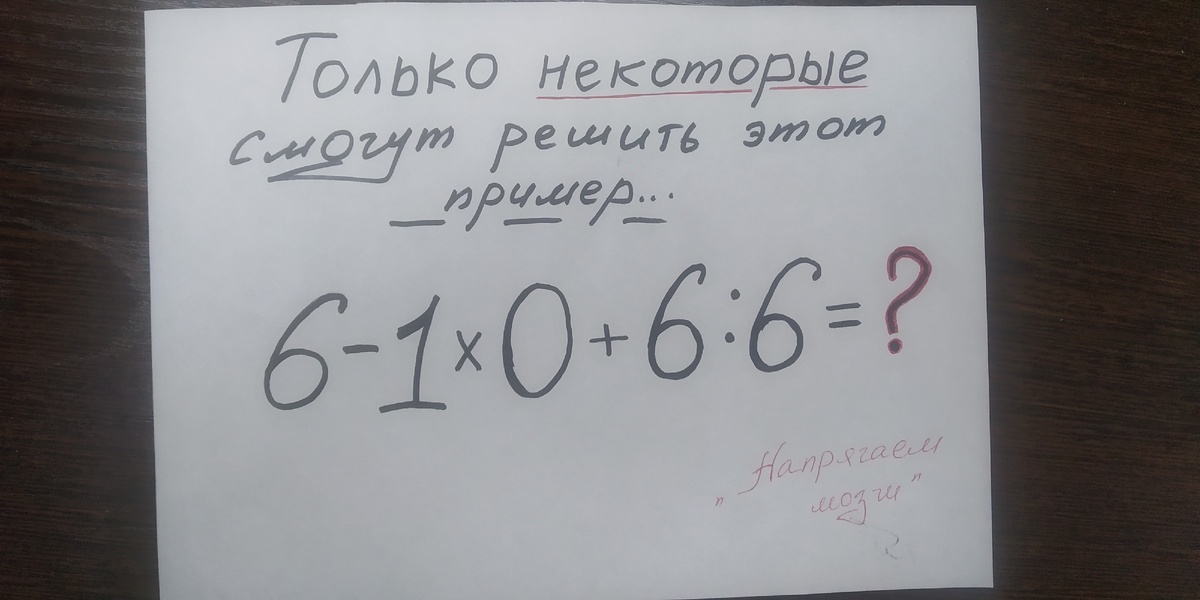 Только некоторые
смогут решить этот
пример...
6-1×0+6:6=?
"Напрягаем
мозги"